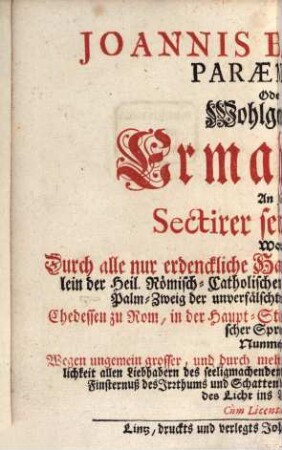 JOANNIS E
PARÆ
Ode
Wohlg
Erma
An
Sectirer se
We
Durch alle nur erdenckliche Ha
lein der Heil. Römisch-Catholische
Palm-Zweig der unverfälscht
Ehedessen zu Rom, in der Haupt-St
scher Spr
Nunme
Wegen ungemein grosser, und durch meh
lichkeit allen Liebhabern des seeligmachenden
Finsternuß des Irrthums und Schatten
des Licht ins
Cum Licent
Lintz, druckts und verlegts Joh